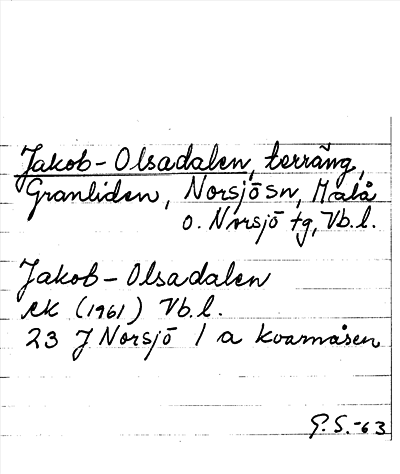 Jakob-Olsadalen, terräng,
Granliden, Norsjö sn, Malå
o. Norsjö tg, Vb.l.
Jakob-Olsadalen
ek (1961) Vb.l.
23 J Norsjö 1 a Kvarnåsen
G.S.-63